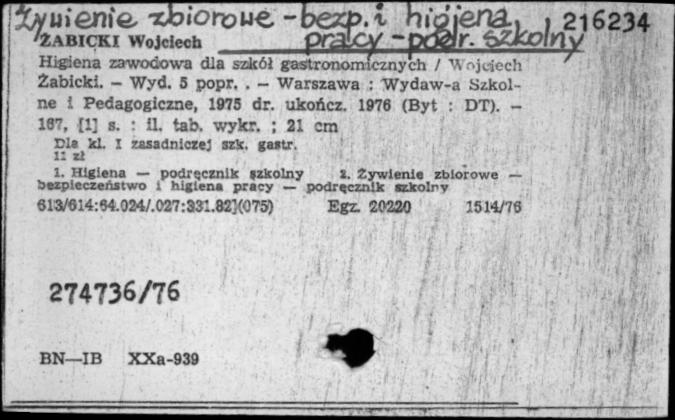 Żywienie zbiorowe - bezp. i higiena 216234
pracy - podr. szkolny
ŻABICKI Wojciech
Higiena zawodowa dla szkół gastronomicznych / Wojciech
Żabicki. — Wyd. 5 popr. . — Warszawa : Wydaw-a Szkol-
ne i Pedagogiczne, 1975 dr. ukończ. 1976 (Byt : DT). —
167, [1] s. : il. tab. wykr. ; 21 cm
Dla kl. I zasadniczej szk. gastr.
11 zł
1. Higiena — podręcznik szkolny 2. Żywienie zbiorowe —
bezpieczeństwo i higiena pracy — podręcznik szkolny
613/614:64.024/.027:331.82](075) Egz. 20220 1514/76
274736/76
BN—IB XXa-939